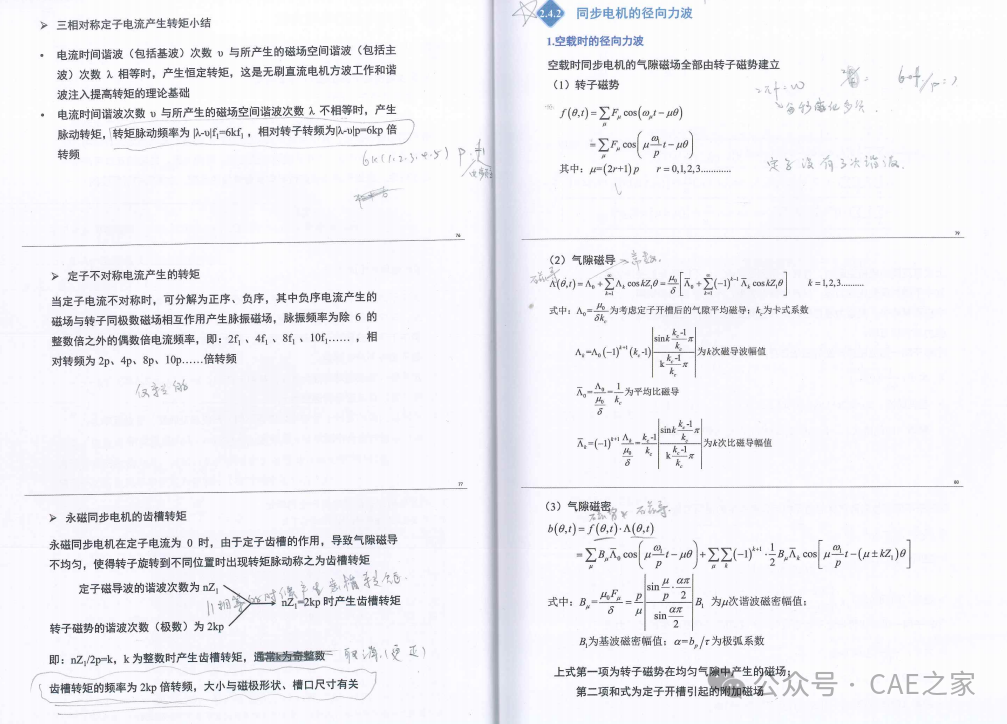 ➢ 三相对称定子电流产生转矩小结
• 电流时间谐波（包括基波）次数 υ 与所产生的磁场空间谐波（包括主
波）次数 λ 相等时，产生恒定转矩，这是无刷直流电机方波工作和谐
波注入提高转矩的理论基础
• 电流时间谐波次数 υ 与所产生的磁场空间谐波次数 λ 不相等时，产生
脉动转矩，转矩脉动频率为 |λ-υ|f₁=6kf₁，相对转子转频为|λ-υ|p=6kp 倍
转频
76
➢ 定子不对称电流产生的转矩
当定子电流不对称时，可分解为正序、负序，其中负序电流产生的
磁场与转子同极数磁场相互作用产生脉振磁场，脉振频率为除 6 的
整数倍之外的偶数倍电流频率，即：2f₁ 、4f₁ 、8f₁ 、10f₁…… ，相
对转频为 2p、4p、8p、10p……倍转频
77
➢ 永磁同步电机的齿槽转矩
永磁同步电机在定子电流为 0 时，由于定子齿槽的作用，导致气隙磁导
不均匀，使得转子旋转到不同位置时出现转矩脉动称之为齿槽转矩
定子磁导波的谐波次数为 nZ₁
nZ₁=2kp 时产生齿槽转矩
转子磁势的谐波次数（极数）为 2kp
即：nZ₁/2p=k，k 为整数时产生齿槽转矩，通常k为奇整数
齿槽转矩的频率为 2kp 倍转频，大小与磁极形状、槽口尺寸有关
2.4.2 同步电机的径向力波
1.空载时的径向力波
空载时同步电机的气隙磁场全部由转子磁势建立
（1）转子磁势
f(θ,t)=∑_μ F_μ cos(ω_μ t−μθ)
=∑_μ F_μ cos(μ ω₁/p t−μθ)
其中：μ=(2r+1)p r=0,1,2,3…………
定子没有3次谐波.
79
（2）气隙磁导 常数.
Λ(θ,t)=Λ₀+∑_{k=1}^∞ Λ_k cos kZ₁θ=μ₀/δ[Λ̄₀+∑_{k=1}^∞(−1)^{k−1} Λ̄_k cos kZ₁θ] k=1,2,3………
式中：Λ₀=μ₀/(δk_c) 为考虑定子开槽后的气隙平均磁导；k_c为卡式系数
Λ_k=Λ₀(−1)^{k+1}(k_c-1)|sin k (k_c-1)/k_c π / (k (k_c-1)/k_c π)| 为k次磁导波幅值
Λ̄₀=Λ₀/(μ₀/δ)=1/k_c 为平均比磁导
Λ̄_k=(−1)^{k+1} Λ_k/(μ₀/δ)=(k_c-1)/k_c |sin k (k_c-1)/k_c π / (k (k_c-1)/k_c π)| 为k次比磁导幅值
80
（3）气隙磁密
b(θ,t)=f(θ,t)·Λ(θ,t)
=∑_μ B_μ Λ̄₀ cos(μ ω₁/p t−μθ)+∑_μ∑_k(−1)^{k+1}·1/2 B_μ Λ̄_k cos[μ ω₁/p t−(μ±kZ₁)θ]
式中：B_μ=μ₀F_μ/δ=p/μ |sin(μ/p·απ/2)/sin(απ/2)| B₁ 为μ次谐波磁密幅值；
B₁为基波磁密幅值；α=b_p/τ为极弧系数
上式第一项为转子磁势在均匀气隙中产生的磁场；
第二项和式为定子开槽引起的附加磁场
公众号 · CAE之家